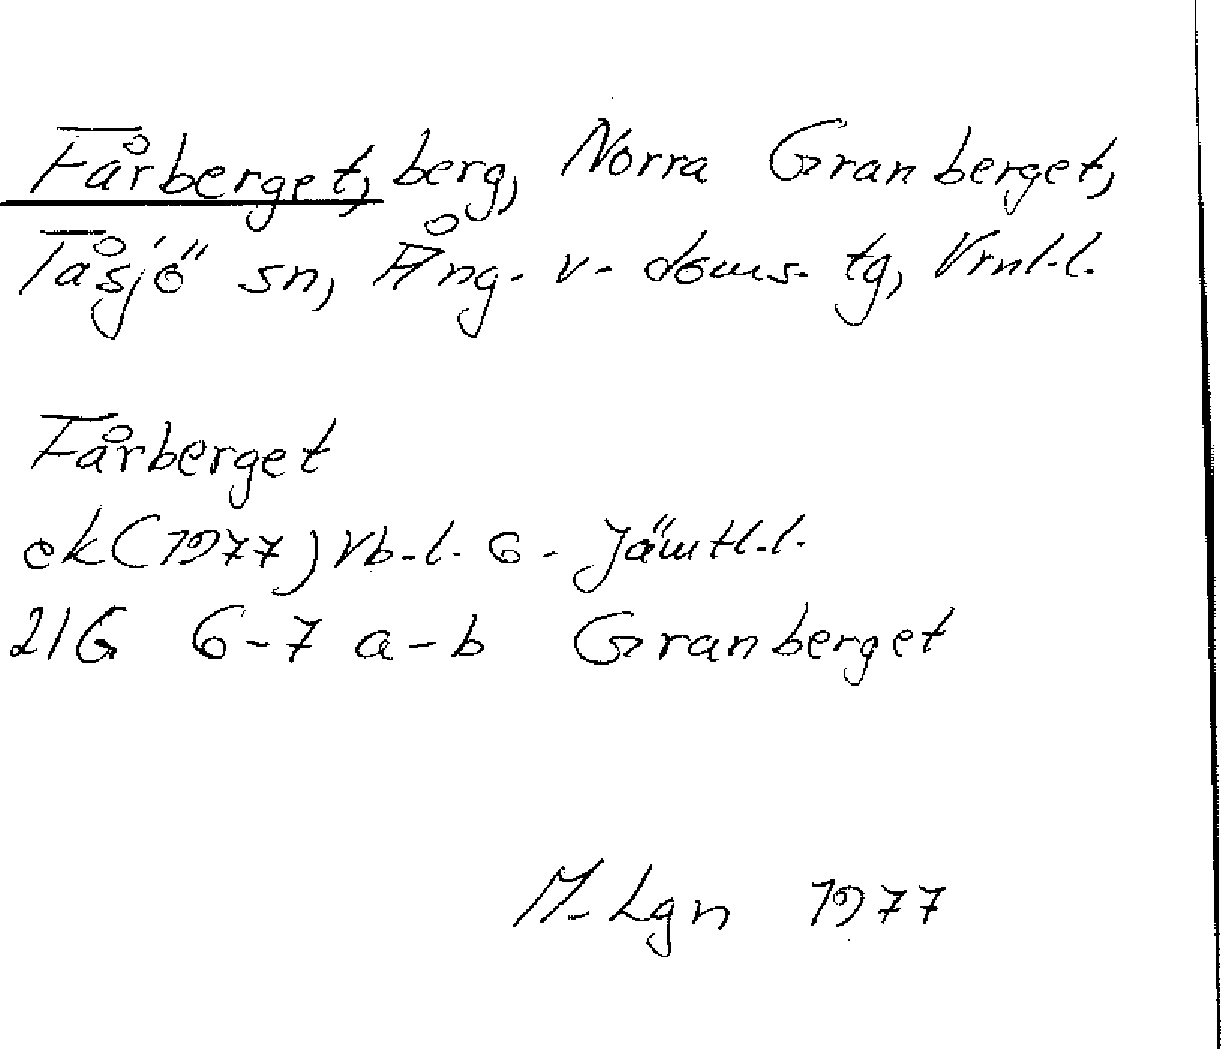 Fårberget, berg, Norra Granberget,
Tåsjö sn, Ång. v. doms. tg, Vrnl.l.
Fårberget
ek (1977) Vb.l. 6. Jämtl.l.
21G 6-7 a-b Granberget
M. Lgn 1977